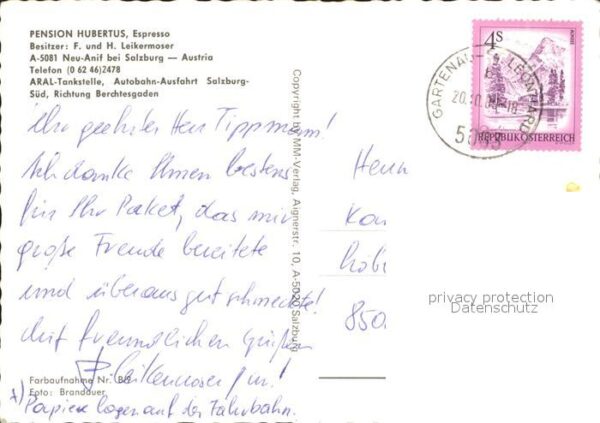 PENSION HUBERTUS, Espresso
Besitzer: F. und H. Leikermoser
A-5081 Neu-Anif bei Salzburg — Austria
Telefon (0 62 46) 2478
ARAL-Tankstelle, Autobahn-Ausfahrt Salzburg-
Süd, Richtung Berchtesgaden
Sehr geehrter Herr Tippmann!
Ich danke Ihnen bestens
für Ihr Paket, das mir
große Freude bereitete
und überaus gut schmeckte!
Mit freundlichen Grüßen
Leikermoser jun.!
Farbaufnahme Nr.
Foto: Brandauer
*) Papiere lagen auf der Fahrbahn.
Copyright by MM-Verlag, Aignerstr. 10, A-5020 Salzburg
4S
REPUBLIK ÖSTERREICH
GARTENAU-ST. LEONHARD
20.10.
-18
Herrn
850
privacy protection
Datenschutz